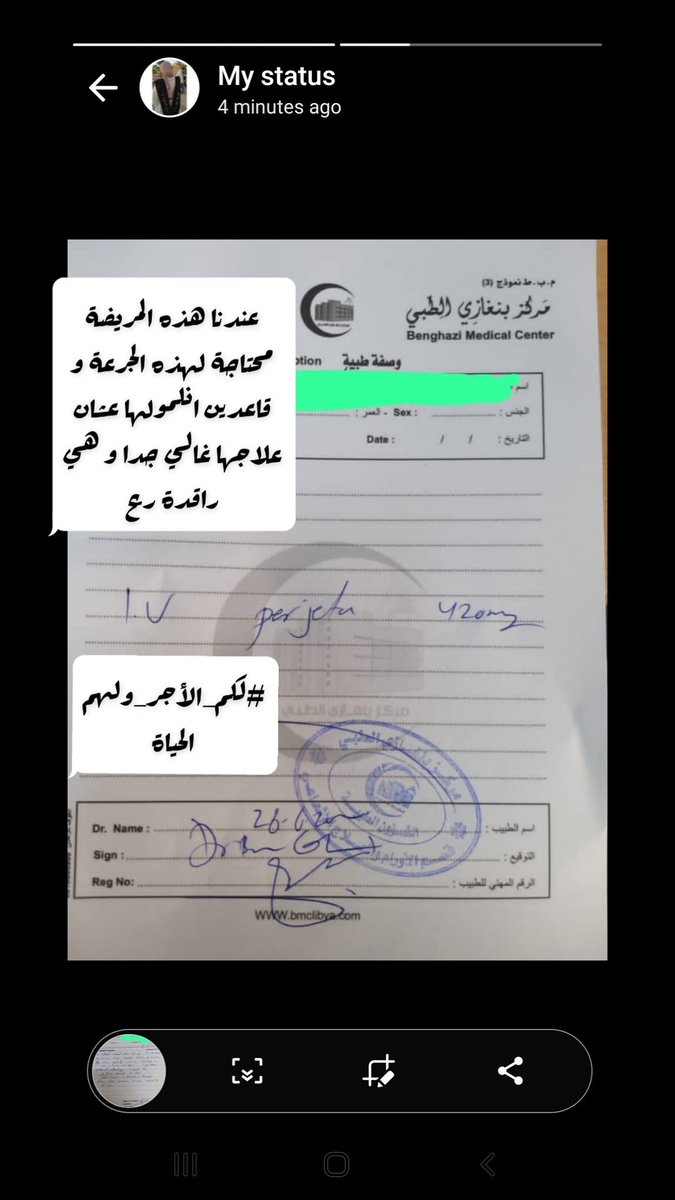 My status
4 minutes ago
م.ب.ط نموذج (3)
مركز بنغازي الطبي
Benghazi Medical Center
وصفة طبية
ption
اسم
الجنس : Sex : - العمر :
التاريخ : / / Date :
عندنا هذه المريضة
محتاجة لهذه الجرعة و
قاعدين انلمولها عشان
علاجها غالي جدا و هي
راقدة رع
I.V perjeta 420mg
مركز بنغازي الطبي
#لكم_الأجر_ولهم
الحياة
مركز بنغازي الطبي
Dr. Name : اسم الطبيب :
Sign : Dr التوقيع :
Reg No: الرقم المهني للطبيب :
WWW.bmclibya.com